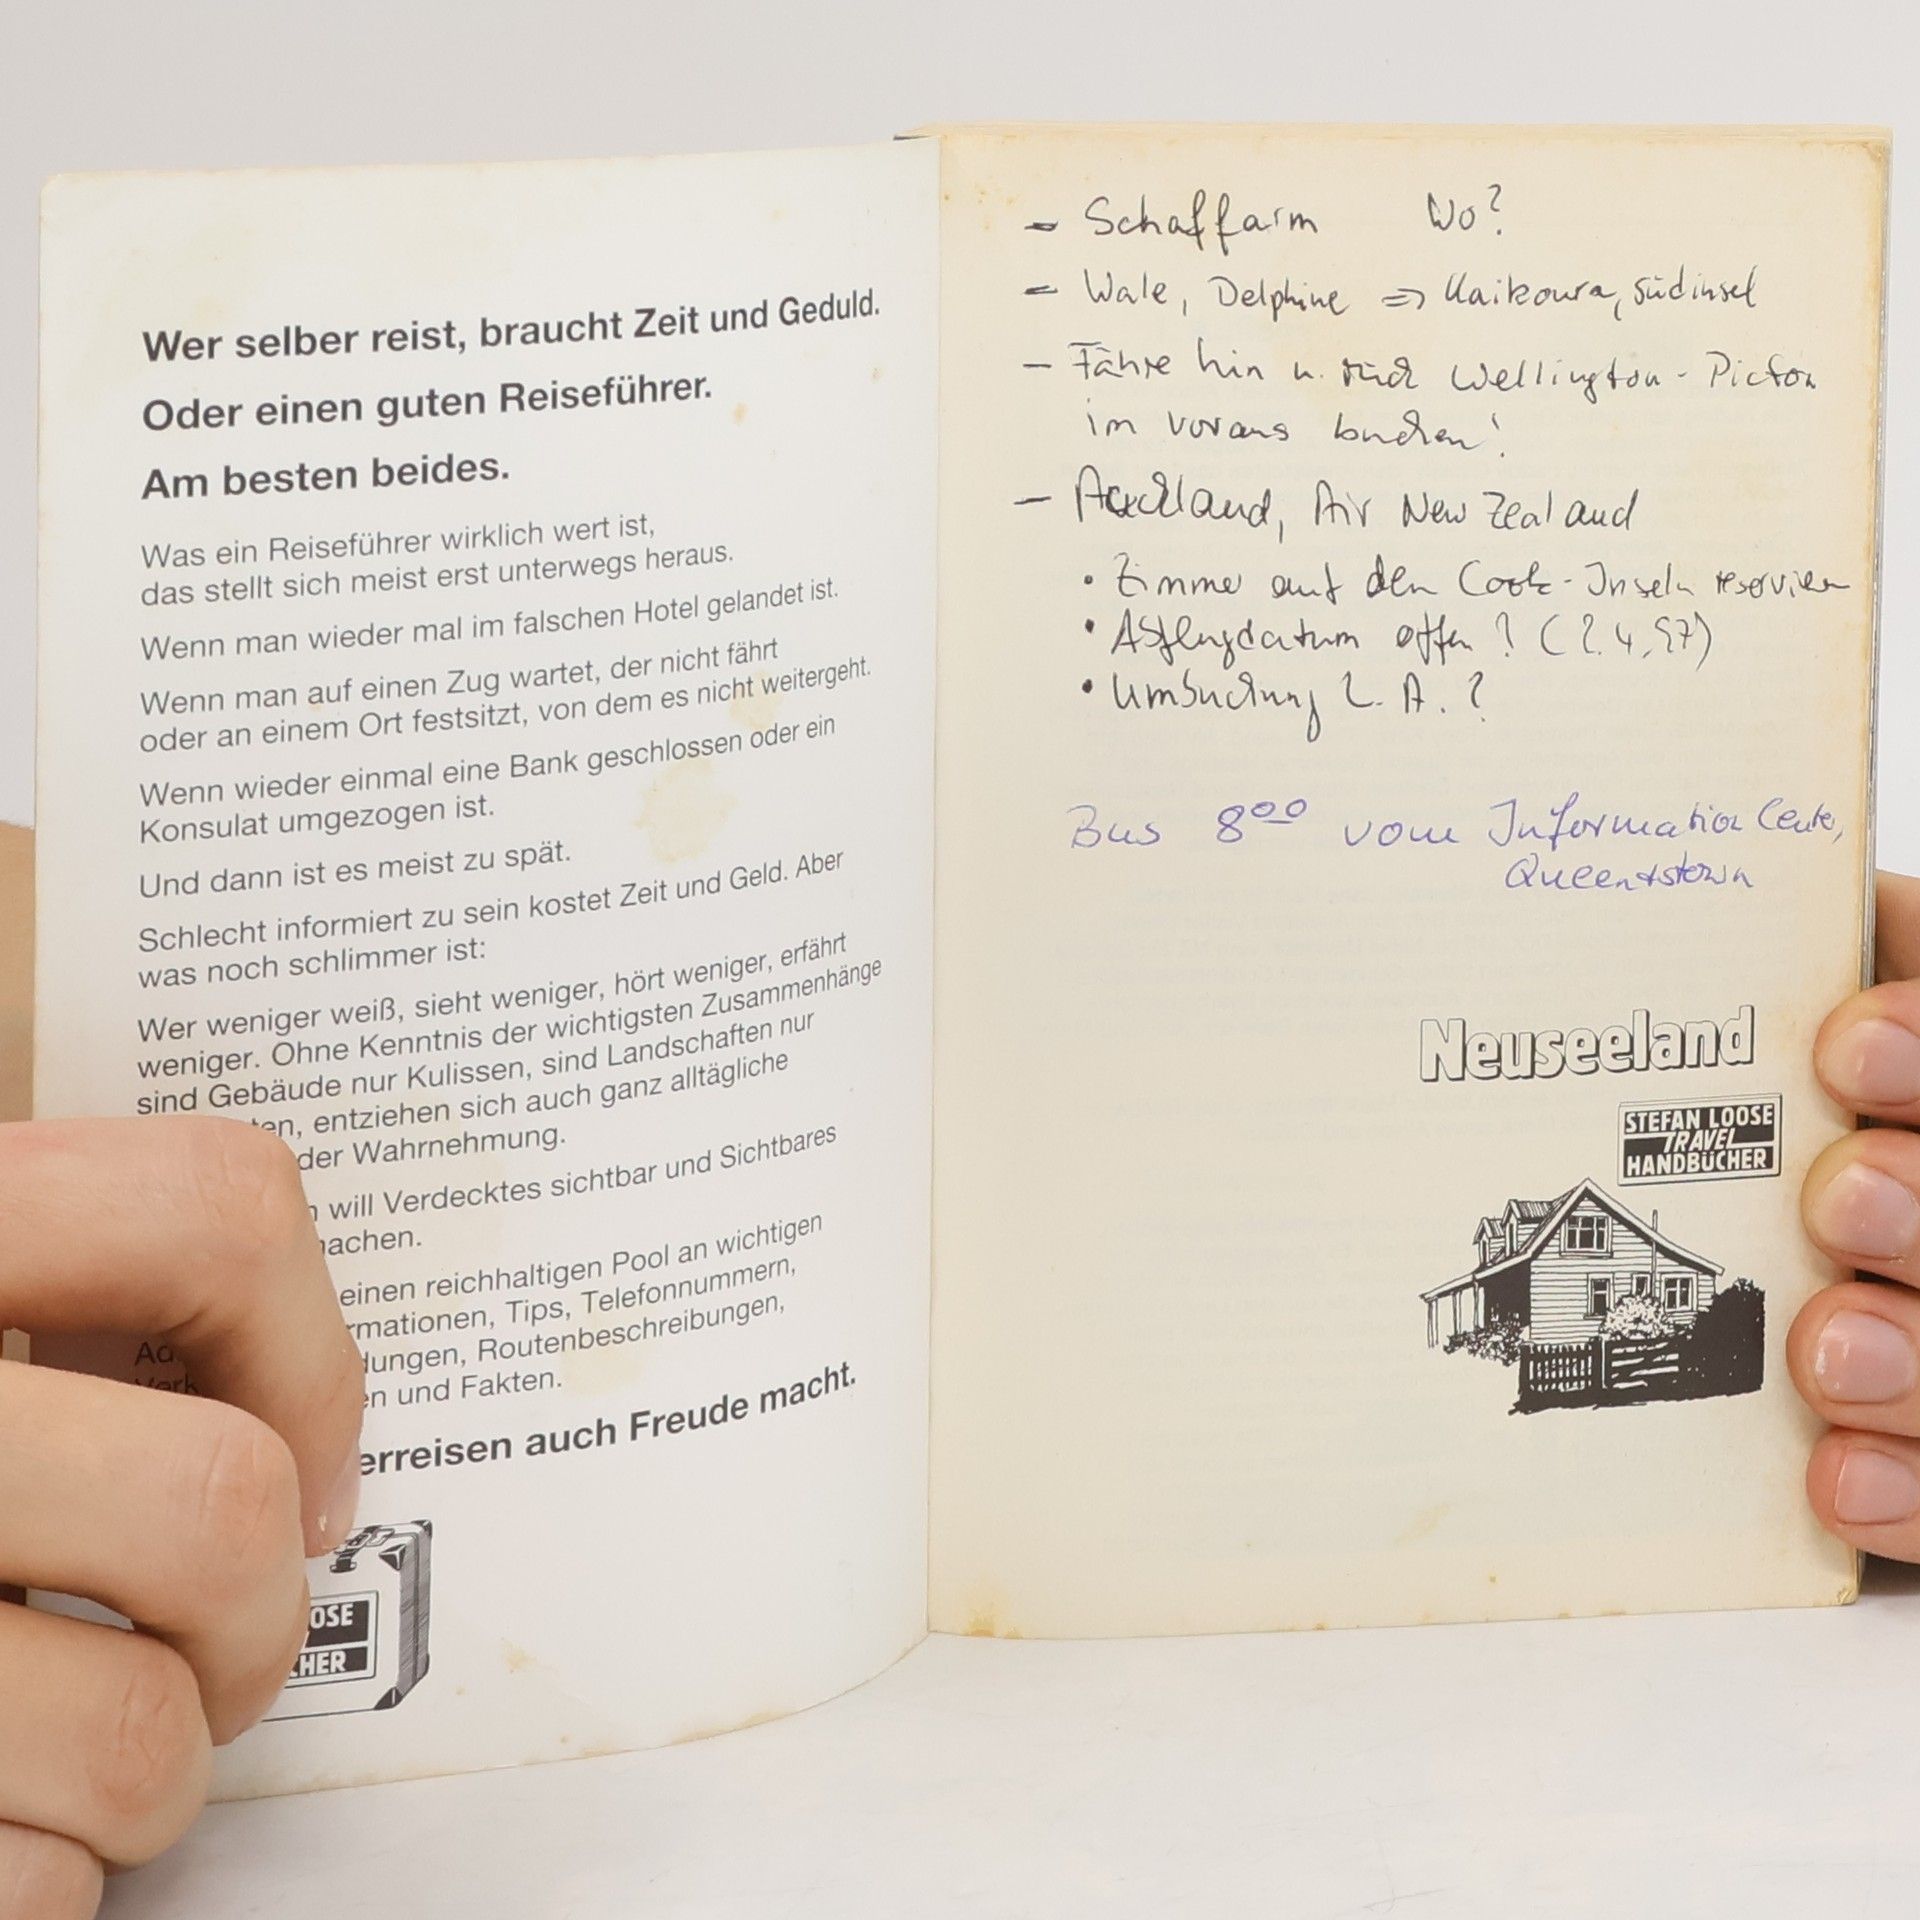 Wer selber reist, braucht Zeit und Geduld.
Oder einen guten Reiseführer.
Am besten beides.
Was ein Reiseführer wirklich wert ist,
das stellt sich meist erst unterwegs heraus.
Wenn man wieder mal im falschen Hotel gelandet ist.
Wenn man auf einen Zug wartet, der nicht fährt
oder an einem Ort festsitzt, von dem es nicht weitergeht.
Wenn wieder einmal eine Bank geschlossen oder ein
Konsulat umgezogen ist.
Und dann ist es meist zu spät.
Schlecht informiert zu sein kostet Zeit und Geld. Aber
was noch schlimmer ist:
Wer weniger weiß, sieht weniger, hört weniger, erfährt
weniger. Ohne Kenntnis der wichtigsten Zusammenhänge
sind Gebäude nur Kulissen, sind Landschaften nur
ten, entziehen sich auch ganz alltägliche
der Wahrnehmung.
will Verdecktes sichtbar und Sichtbares
achen.
einen reichhaltigen Pool an wichtigen
rmationen, Tips, Telefonnummern,
Ad dungen, Routenbeschreibungen,
Verk en und Fakten.
erreisen auch Freude macht.
OSE
CHER
- Schaffarm Wo?
- Wale, Delphine => Kaikoura, Südinsel
- Fähre hin u. rück Wellington - Picton
im voraus buchen!
- Auckland, Air New Zealand
• Zimmer auf den Cook-Inseln reservieren
• Abflugdatum offen? (2.4.97)
• Umbuchung L.A.?
Bus 8⁰⁰ vom Information Centre,
Queenstown
Neuseeland
STEFAN LOOSE
TRAVEL
HANDBÜCHER